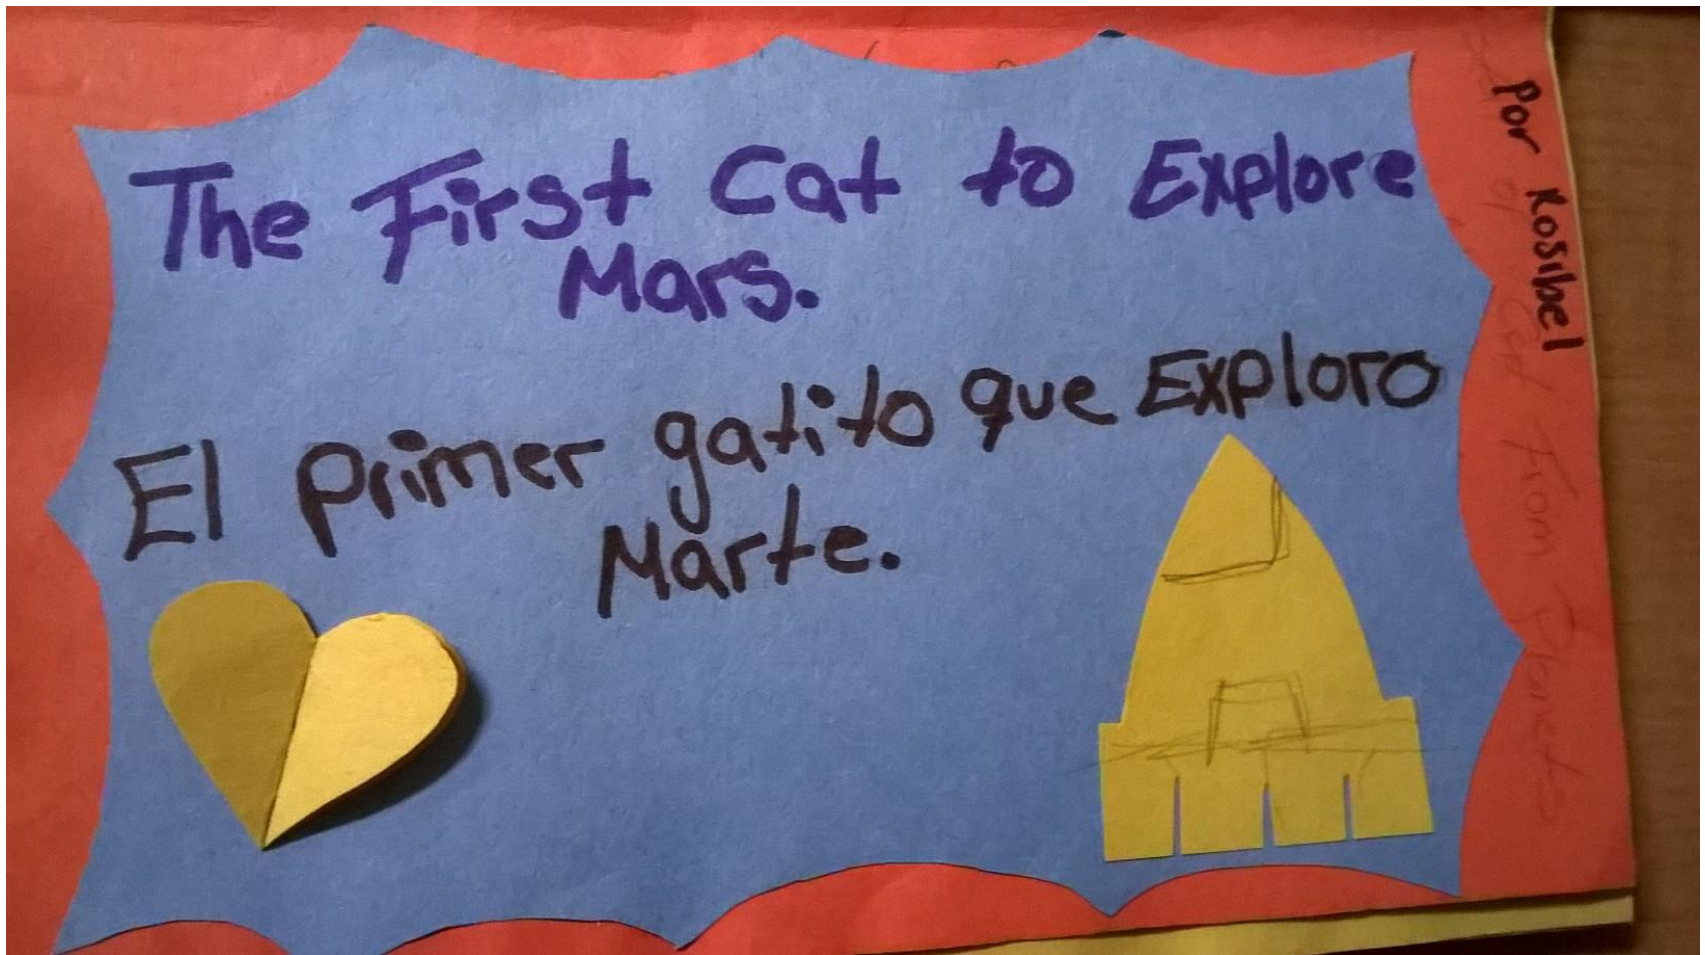 The First Cat to Explore
Mars.
El primer gatito que Exploro
Marte.
Por Rosibel
From Planets